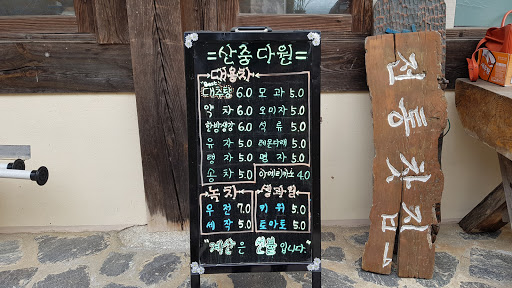 =산중다원=
대용차
대추탕 6.0 모과 5.0
약차 6.0 오미자 5.0
한방생강 6.0 석류 5.0
유자 5.0 레몬다래 5.0
명자 5.0
송차 5.0 아메리카노 4.0
녹차 생과일
우전 7.0 키위 5.0
세작 5.0 토마토 5.0
"계산은 선불입니다."
전통찻집